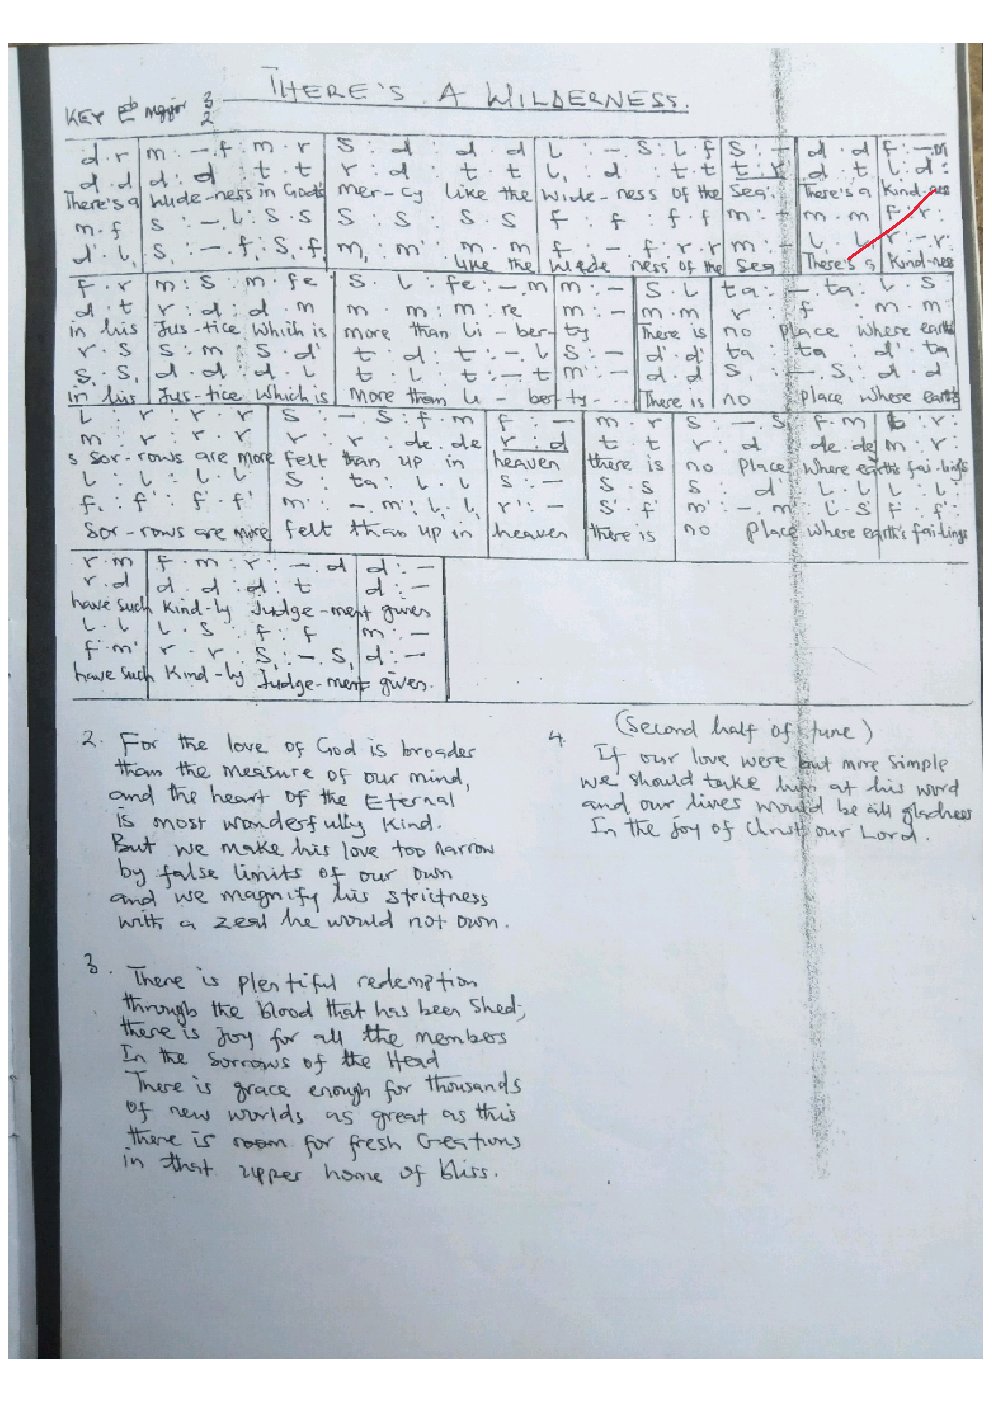 THERE'S A WILDERNESS.
KEY Eb major 3/2
d.r | m : - .f : m . r | S : d : d . d | L : - S : L f | S : - | d . d | f : - .m
d . d | d : d : t . t | r : d : t . t | L, d : t t | t . r | d . t | L : d :
There's a | Wide-ness in God's | mer-cy like the | Wide-ness of the | Sea. | There's a | Kind-nes
m . f | S : - L : S . S | S : S : S . S | f : f : f . f | m : | m . m | f : r :
d . L, | S, : - . f, : S, . f, | m, : m : m . m | f : - f : r . r | m : | L, L, | r : - r :
like the | Wide ness of the | Sea | There's a | Kind-nes
f . r | m : S . m . fe | S . L : fe : - . m | m : - | S . L | ta : - . ta : L . S
d . t | r : d : d . m | m . m : m : re | m : - | m . m | r : f : m . m
in his | Jus-tice Which is | more than li - ber- | ty | There is | no place where earth
r . S | S : m : S . d' | t : d : t : - . L | S : - | d' . d' | ta : ta : d' . ta
S, . S, | d : d : d . L | t . L : t : - t | m : - | d . d | S, : - S, : d . d
in his | Jus-tice Which is | More than li - ber- | ty --- | There is | no place where earth
L : r : r . r | S : - S : f m | f : - | m . r | S : - . S : f . m | r :
m : r : r . r | r : r : de . de | r : d | t t | r : d : de . de | m : r :
s Sor-rows are more | felt than up in | heaven | there is | no place where earth's failings
L : L : L L | S : ta : L . L | S : - | S . S | S : d' : L . L | L : L :
f : f : f . f | m : - . m : L . L, | r : - | S . f | m : - . m : L . S | f : f :
Sor-rows are more | felt than up in | heaven | there is | no place where earth's failings
r . m | f . m : r : - . d | d : -
r . d | d . d : d : t | d : -
have such | Kind-ly Judge-ment gives
L . L | L . S : f : f | m : -
f m | r . r : S, : - . S, | d : -
have such | Kind-ly Judge-ment given.
2. For the love of God is broader
than the measure of our mind,
and the heart of the Eternal
is most wonderfully kind.
But we make his love too narrow
by false limits of our own
and we magnify his strictness
with a zeal he would not own.
3. There is plentiful redemption
through the blood that has been Shed;
there is joy for all the members
In the sorrows of the Head
There is grace enough for thousands
of new worlds as great as this
there is room for fresh Creations
in that upper home of bliss.
(Second half of tune)
4. If our love were but more simple
we should take him at his word
and our lives would be all gladness
In the joy of Christ our Lord.